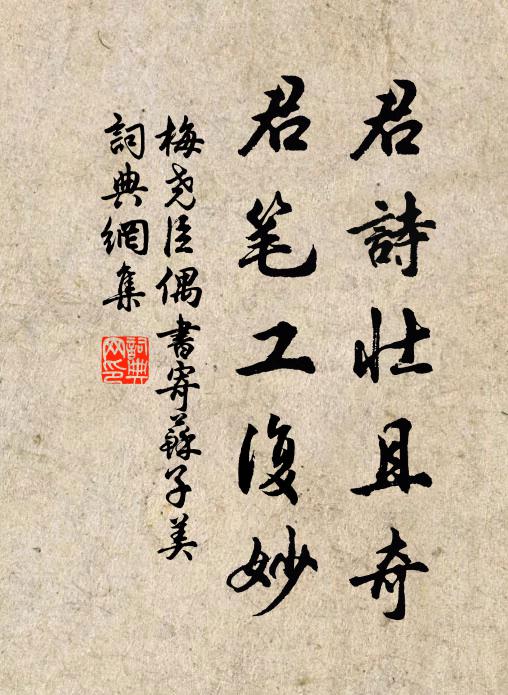 君詩壯且奇
君笔工復妙
梅尧臣偶書寄蘇子美
詞典網集
詞典
网印